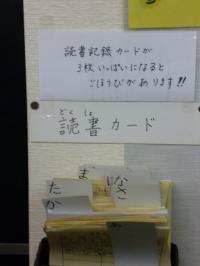 読書記録カードが
3枚いっぱいになると
ごほうびがあります!!
どくしょ
読書カード
ま
な
た
さ
か